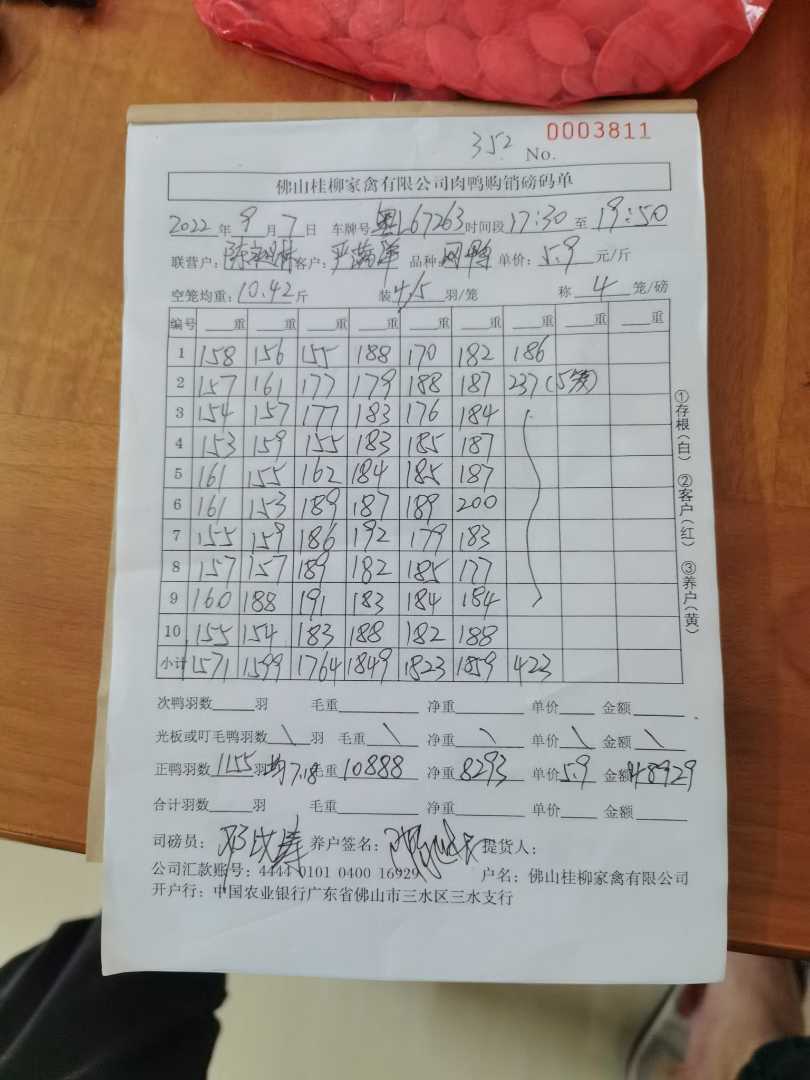 352 No. 0003811
佛山桂柳家禽有限公司肉鸭购销磅码单
2022年9月7日 车牌号粤L67263时间段17:30至19:50
联营户: 客户: 品种: 鸭 单价: 5.9 元/斤
空笼均重: 10.42斤 装4.5羽/笼 称4笼/磅
编号 重 重 重 重 重 重 重 重 重
1 158 156 155 188 170 182 186
2 157 161 177 179 188 187 237(5笼)
3 154 157 177 183 176 184
4 153 159 155 183 185 187
5 161 155 162 184 185 187
6 161 153 189 187 189 200
7 155 159 186 192 179 183
8 157 157 189 182 185 177
9 160 188 191 183 184 184
10 155 154 183 188 182 188
小计 1571 1599 1764 1849 1823 1859 423
①存根(白) ②客户(红) ③养户(黄)
次鸭羽数 羽 毛重 净重 单价 金额
光板或叮毛鸭羽数\羽 毛重\ 净重\ 单价\ 金额\
正鸭羽数1155羽均7.18毛重10888 净重8293 单价5.9 金额48929
合计羽数 羽 毛重 净重 单价 金额
司磅员: 养户签名: 提货人:
公司汇款账号: 4444 0101 0400 16929 户名: 佛山桂柳家禽有限公司
开户行: 中国农业银行广东省佛山市三水区三水支行